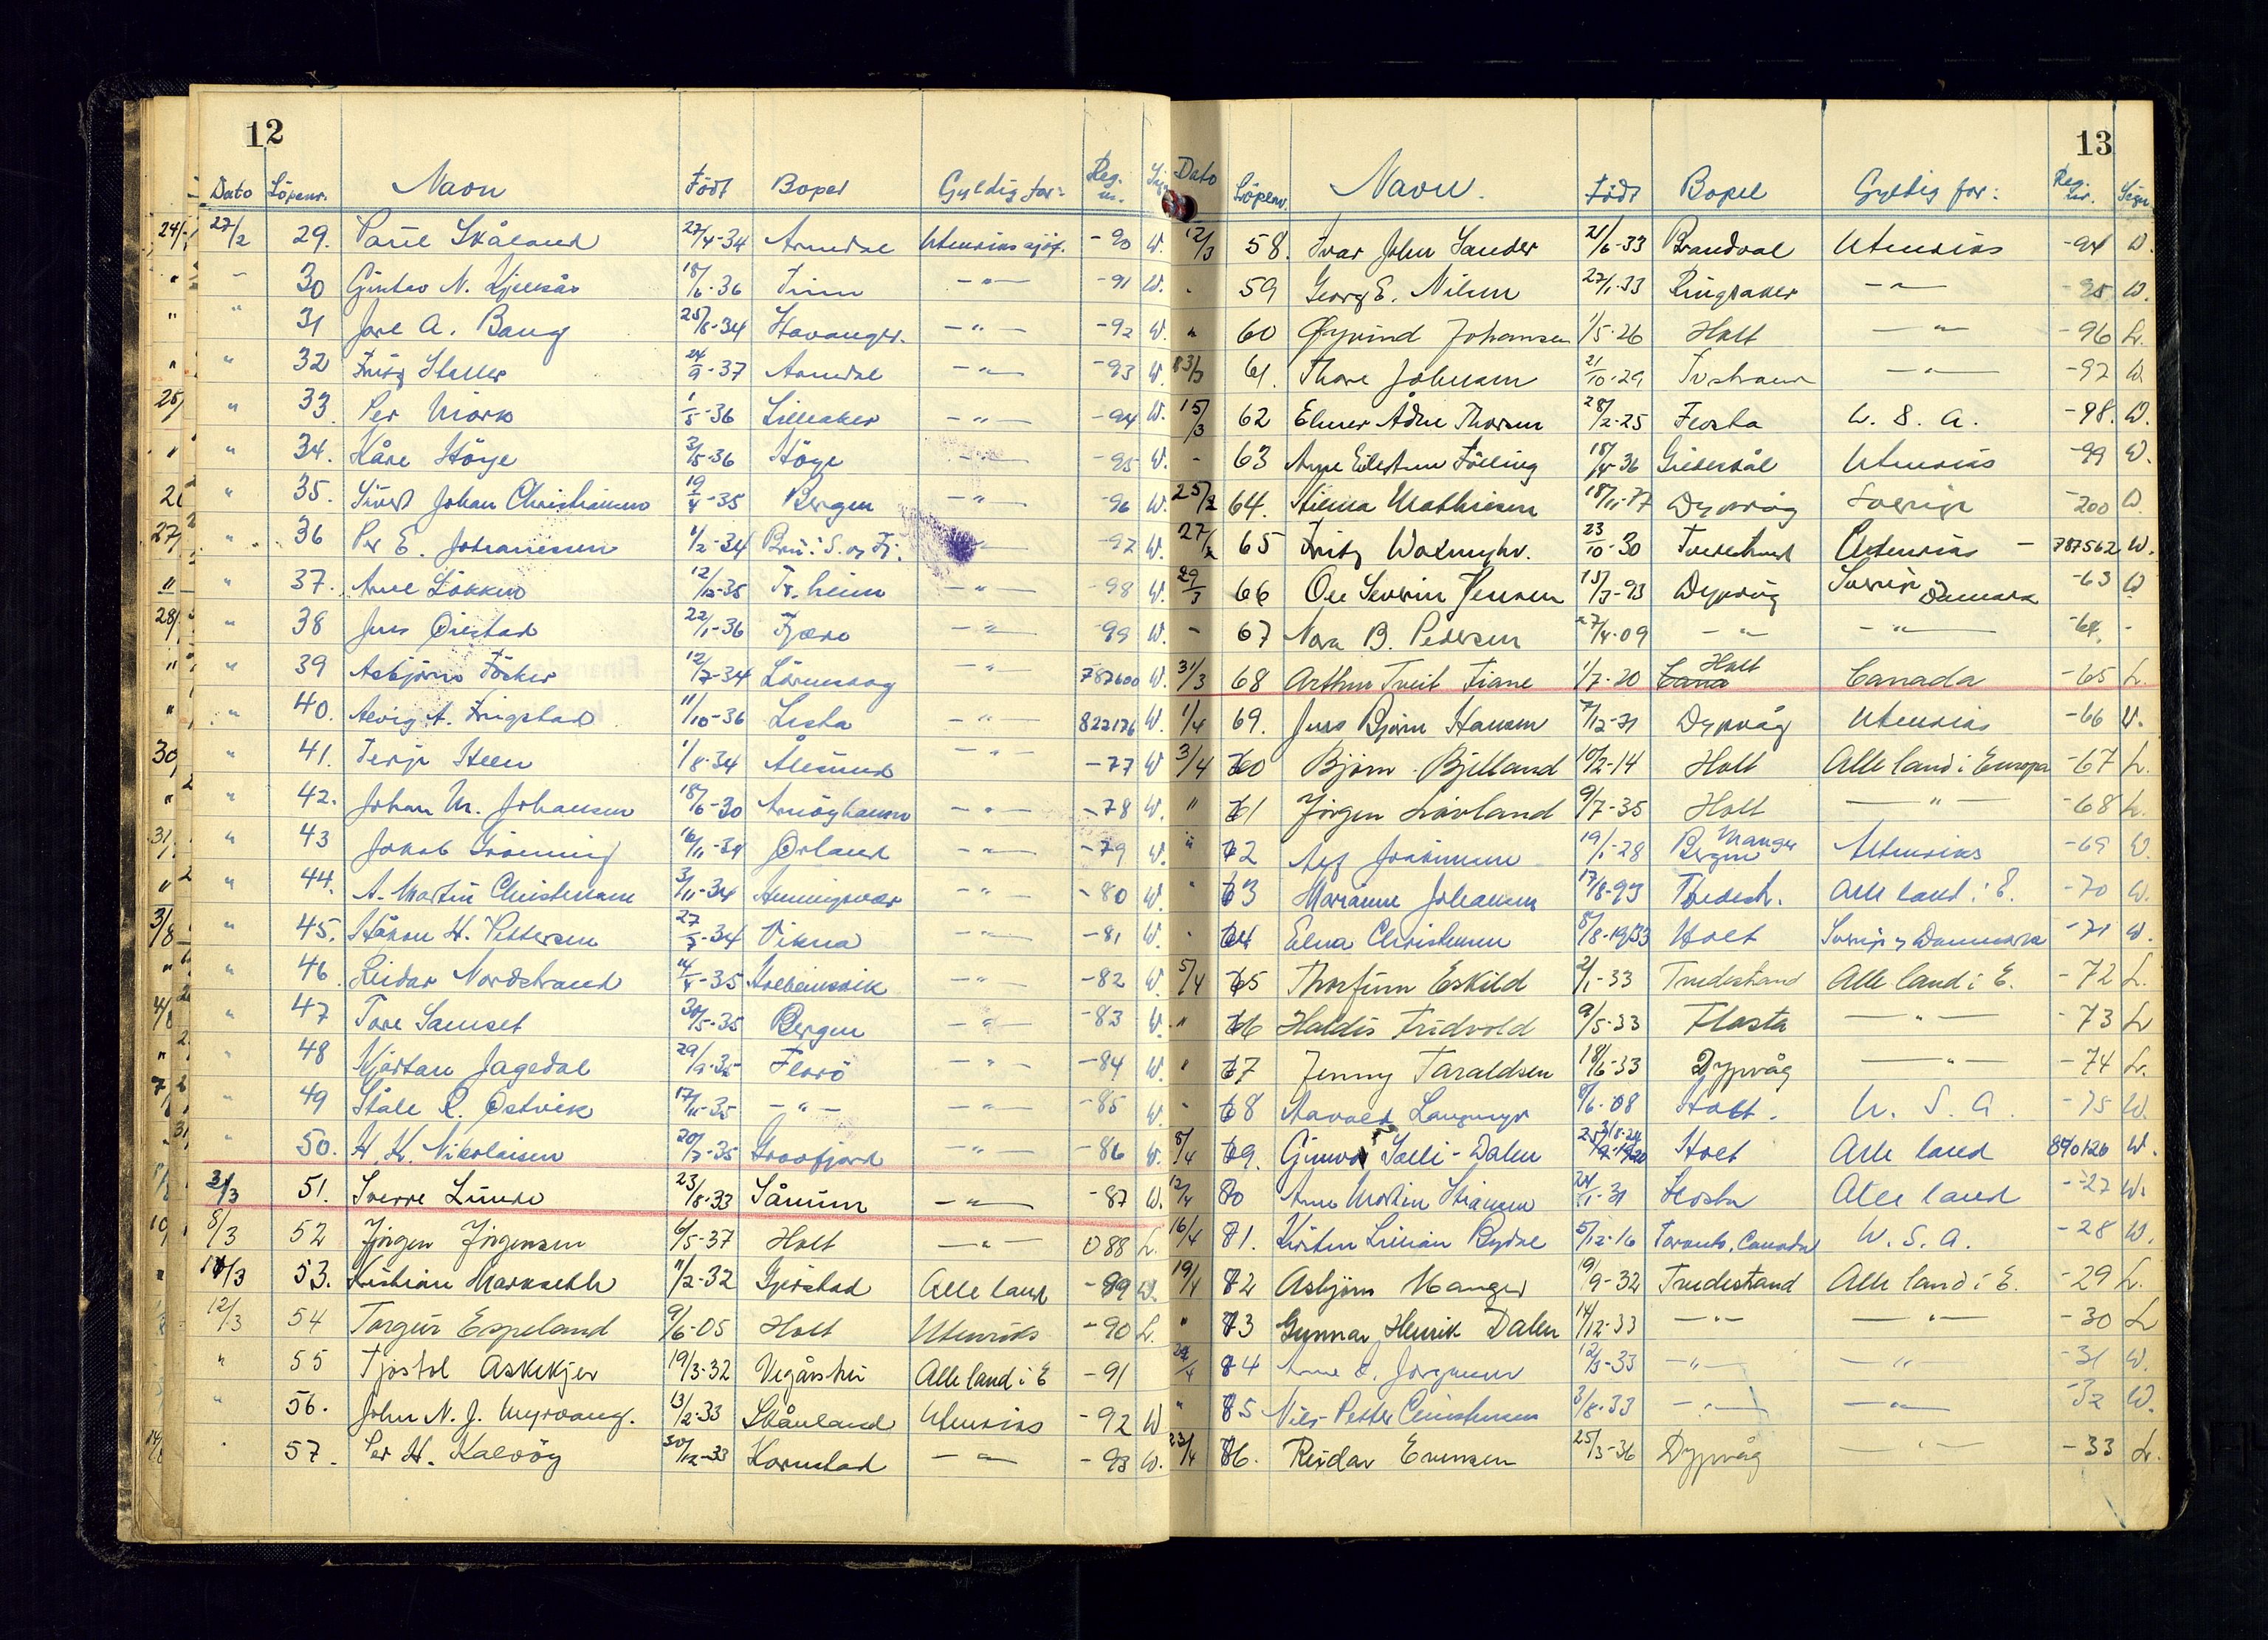 12
Dato Löpenr. Navn Födt Bopel Gyldig for: Reg. nr.
27/2 29. Paul Skåland 27/4-34 Arendal Utenriks sjöf. -90 W.
30 Gustav N. 18/6-36 Tinn -"- -91 W.
" 31 Joré A. Bang 25/6-34 Stavanger. -"- -92 W.
" 32 Fritz Staller 24/9-37 Arendal -"- -93 W.
" 33. Per Mörk 1/5-36 Lilleaker -"- -94 W.
" 34. Kåre Höye 3/5-36 Höye -"- -95 W.
" 35. Johan Christiansen 19/4-35 Bergen -"- -96 W.
" 36 Per E. Johannessen 1/2-34 -"- -97 W.
" 37. Arne Lökken 12/12-35 Tr. heim -"- -98 W.
" 38 Jens Öiestad 22/1-36 Fjære -"- -99 W.
" 39 Asbjörn Fosker 12/7-34 Lörenskog -"- 787600 W.
" 40. Alvig A. Frigstad 11/10-36 Lista -"- 822176 W.
" 41. Terje Steen 1/8-34 Ålesund -"- -77 W
" 42. Johan M. Johansen 18/6-30 -"- -78 W.
" 43 Jakob 16/11-34 Örland -"- -79 W.
" 44. A. Martin Christensen 3/11-34 Henningsvær -"- -80 W.
" 45. Håkon H. Pettersen 27/7-34 Vikna -"- -81 W.
" 46 Reidar Nordstrand 14/4-35 -"- -82 W.
" 47 Tore Samset 30/5-35 Bergen -"- -83 W.
" 48 Kjartan Jagedal 29/9-35 Florö -"- -84 W.
" 49 Ståle R. Östvik 17/11-35 -"- -"- -85 W.
" 50. H. K. Nikolaisen 20/7-35 -"- -86 W.
3/3 51. Sverre Lunde 23/8-33 Sånum -"- -87 W.
8/3 52 Jörgen Jörgensen 6/5-37 Holt -"- 088 L.
10/3 53. Kristian Marksetth 11/2-32 Gjerstad Alle land -89 W.
12/3 54 Torgeir Espeland 9/6-05 Holt Utenriks -90 L.
" 55 Tjostol Askekjer 19/3-32 Vegårshei Alle land i E -91
" 56. John N. J. Myrvang. 13/2-33 Skånland Utenriks -92 W
57. Per H. Kalvög 30/12-33 Kornstad -"- -93 W.
13
Dato Löpenr. Navn. Födt Bopel Gyldig for: Reg. nr. Sign.
12/3 58. Ivar John Sander 21/6-33 Brandval Utenriks -94 W.
59 Georg E. Nilsen 27/1-33 Ringsaker -"- -95 W.
" 60 Øyvind Johansen 1/5-26 Holt -"- -96 L.
13/3 61. Thore Johnsen 21/10-29 Tvestrand -"- -97 W.
15/3 62 Elmer Ådne Thorsen 28/2-25 Flosta U. S. A. -98. W.
- 63 Fölling 18/4-36 Gildeskål Utenriks -99 W.
25/3 64. Hilma Mathisen 18/11-77 Dypvåg Sverige -200 W.
27/3 65 Fritz 23/10-30 Tvedestrand Utenriks - 787562 W.
29/3 66 Ole Severin Jensen 15/7-93 Dypvåg Sverige Danmark -63 W
- 67 Nora B. Pedersen 27/4-09 -"- -"- -64. -
31/3 68 Arthur Tveit Fiane 1/7-20 Cana Holt Canada -65 L.
1/4 69. Jens Björn Hansen 7/12-31 Dypvåg Utenriks -66 W.
3/4 70 Björn Bjelland 10/2-14 Holt Alle land i Europa -67 L.
" 71 Jörgen Lövland 9/7-35 Holt -"- -68 L.
" 72 Alf 19/1-28 Bergen Manger Utenriks -69 W.
" 73 Marianne Johansen 17/8-93 Tvedestr. Alle land i E. -70 W.
- 74 Elna Christensen 8/8-1933 Holt Sverige og Danmark -71 W.
5/4 75 Thorfinn Eskild 2/1-33 Tvedestrand Alle land i E. -72 L.
" 76 Haldis Fridvold 9/5-33 Flosta -"- -73 L
" 77 Jenny Taraldsen 18/6-33 Dypvåg -"- -74 L.
- 78 Langmyr 8/6-08 Holt. U. S. A. -75 W.
8/4 79. Gunvor Solli-Dalen Holt Alle land 840126 W.
12/4 80 Arne Martin 24/11-31 Flosta Alle land -27 W.
16/4 81. Kirsten Lillian Bydal 5/12-16 Toronto, Canada U. S. A. -28 W.
19/4 82 Asbjörn Manger 19/9-32 Tvedestrand Alle land i E. -29 L.
" 83 Gunnar Henrik Dalen 14/12-33 -"- -"- -30 L
22/4 84 Arne E. Jörgensen 12/3-33 -"- -"- -31 W.
" 85 Nils-Petter Christensen 3/8-33 -"- -"- -32 W.
23/4 86. Reidar Evensen 25/3-36 Dypvåg -"- -33 L.